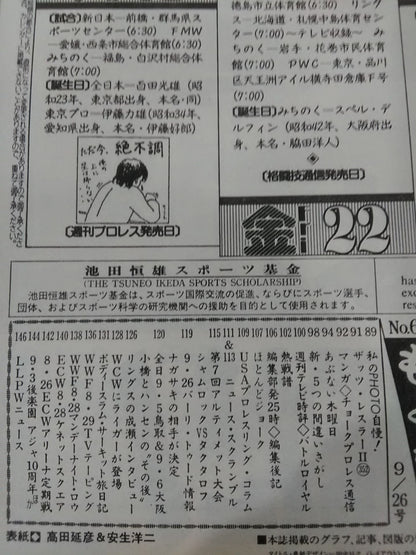 〔試合〕新日本―前橋・群馬県ス
ポーツセンター(6:30) FMW
―愛媛・西条市総合体育館(6:30)
みちのく―福島・白沢村総合体
育館(7:00)
〔誕生日〕全日本―百田光雄(昭
和23年、東京都出身、本名・同)
東京プロ―伊藤力雄(昭和34年、
愛知県出身、本名・伊藤好郎)
ただ今、
絶不調
〔週刊プロレス発売日〕
徳島市立体育館(6:30) リング
ス―北海道・札幌中島体育セン
ター(7:00)〜テレビ収録〜 み
ちのく―岩手・花巻市民体育
館(7:00) PWC―東京・品川
区天王洲アイル横寺田倉庫F号
(7:00)
〔誕生日〕みちのく―スペル・デ
ルフィン(昭和42年、大阪府出
身、本名・脇田洋人)
〔格闘技通信発売日〕
金
22
池田恒雄スポーツ基金
(THE TSUNEO IKEDA SPORTS SCHOLARSHIP)
池田恒雄スポーツ基金は、スポーツ国際交流の促進、ならびにスポーツ選手、
団体、およびスポーツ科学の研究機関への援助を目的として使用されます。
No.6
9/26号
89 私のPHOTO自慢!
91 ザッツ・レスラーⅡ(352)
92 マンガ◇チョークプロレス通信
94 あぶない木曜日
98 新・5つの間違いさがし
100 週刊テレビ時評◇バトルロイヤル
102 熱戦譜
106 編集部発25時◇編集後記
107 ほとんどジョーク
109 USAプロレスリング・コラム
111&113 ニュース・スクランブル
115 第7回アルティメット大会
119 シャムロックVSタクタロフ
120 9・26バーリ・トゥード情報
ナガサキの相手が決定
全日9・5鳥取&9・6大阪
小橋とハンセンの〝その後〟
126 リングスの成瀬インタビュー
128 WCWにライガーが登場
130 ボディースラム・サーキット旅日記
132 WWF8・29TVテーピング
136 WWF8・28マンデーナイト・ロウ
138 ECW8・28ケネットスクエア
140 8・26ECWアリーナ定期戦
142 9・3後楽園 アジャ10周年ほか
144 LLPWニュース
146
表紙◇高田延彦&安生洋二
■本誌掲載のグラフ、記事、図版の